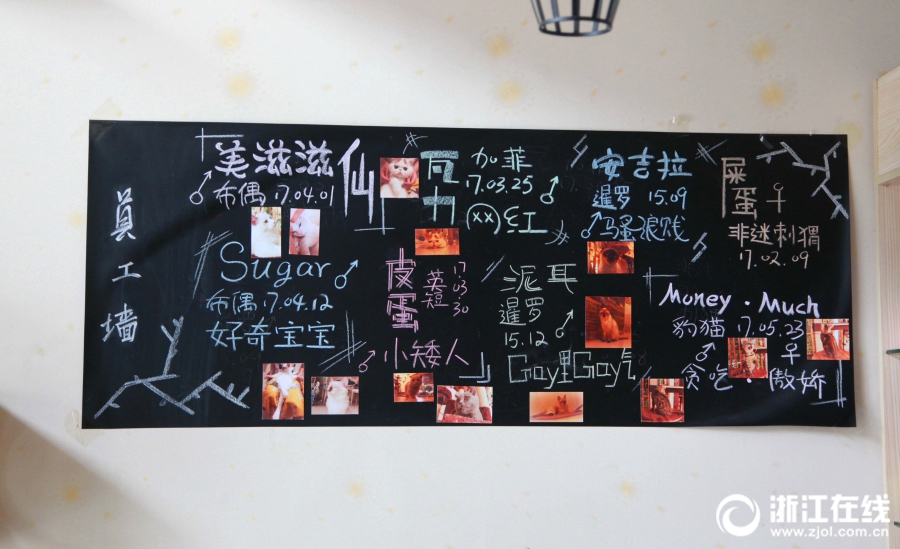 員工墙
美滋滋仙
♂布偶 17.04.01
瓦力
加菲
17.03.25 ♂
(xx)红
安吉拉
暹罗 15.09
♂马蚤浪贱
屎蛋 ♀
非迷刺猬
17.02.09
Sugar ♂
布偶 17.04.12
好奇宝宝
皮蛋
英短
17 03 30
♂小矮人
泥耳
暹罗
15.12 ♂
Gay里Gay气
Money · Much
豹猫 17.05.23
♂ ♀
贪吃 · 傲娇
浙江在线
www.zjol.com.cn